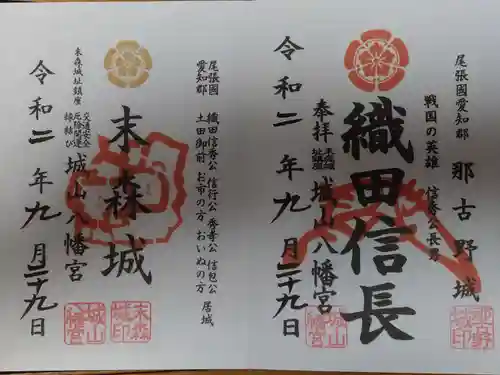 尾張國愛知郡 那古野城
戦国の英雄 信秀公長男
織田信長
奉拝 末森城址鎮座 城山八幡宮
令和二年九月二十九日
那古野城印
城山八幡宮
尾張國愛知郡
織田信秀公 信行公 秀孝公 信包公 居城
土田御前 お市の方 おいぬの方
末森城
末森城址鎮座
交通安全
厄除開運
縁結び
城山八幡宮
令和二年九月二十九日
末森城印
城山八幡宮